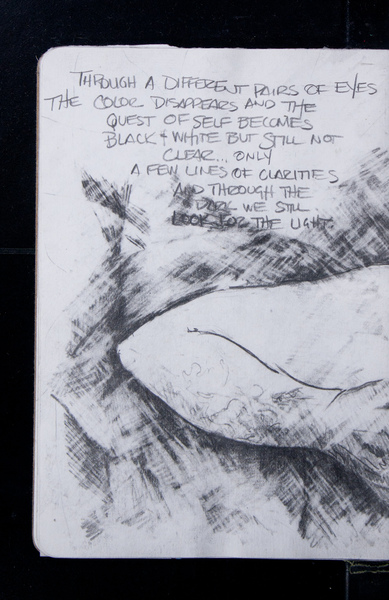 THROUGH A DIFFERENT PAIRS OF EYES
THE COLOR DISAPPEARS AND THE
QUEST OF SELF BECOMES
BLACK + WHITE BUT STILL NOT
CLEAR... ONLY
A FEW LINES OF CLARITIES
AND THROUGH THE
DARK WE STILL
LOOK FOR THE LIGHT